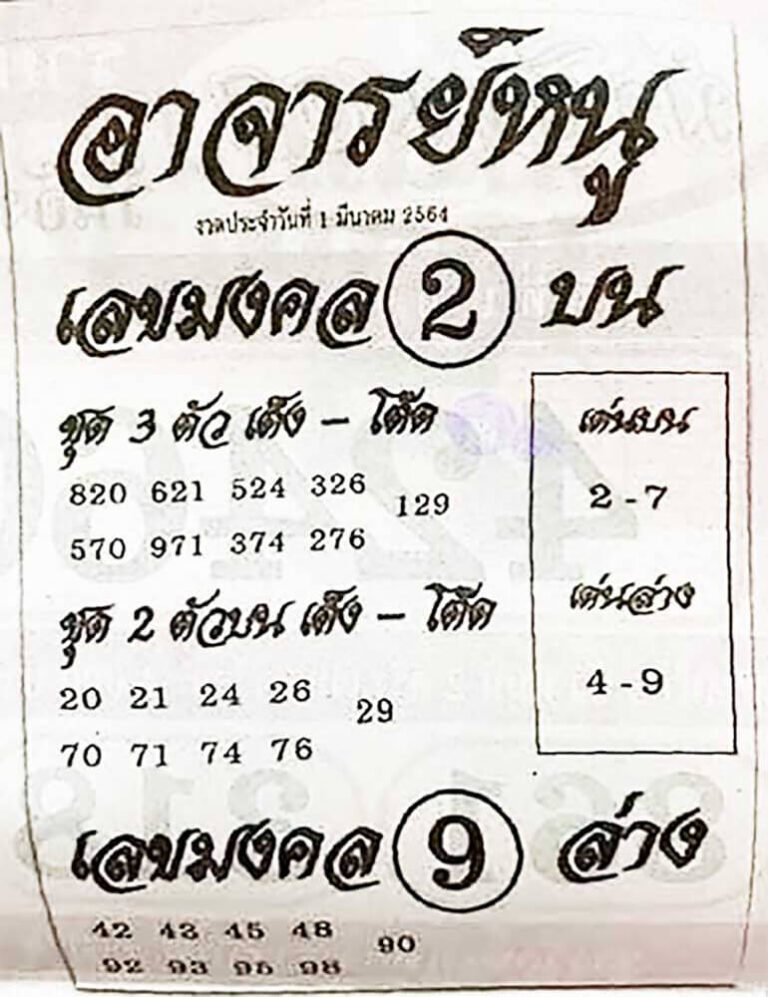 อาจารย์หนู
งวดประจำวันที่ 1 มีนาคม 2564
เลขมงคล 2 บน
ชุด 3 ตัว เต็ง - โต๊ด
820 621 524 326 129
570 971 374 276
เด่นบน
2 - 7
เด่นล่าง
4 - 9
ชุด 2 ตัวบน เต็ง - โต๊ด
20 21 24 26 29
70 71 74 76
เลขมงคล 9 ล่าง
42 43 45 48 90
92 93 95 98